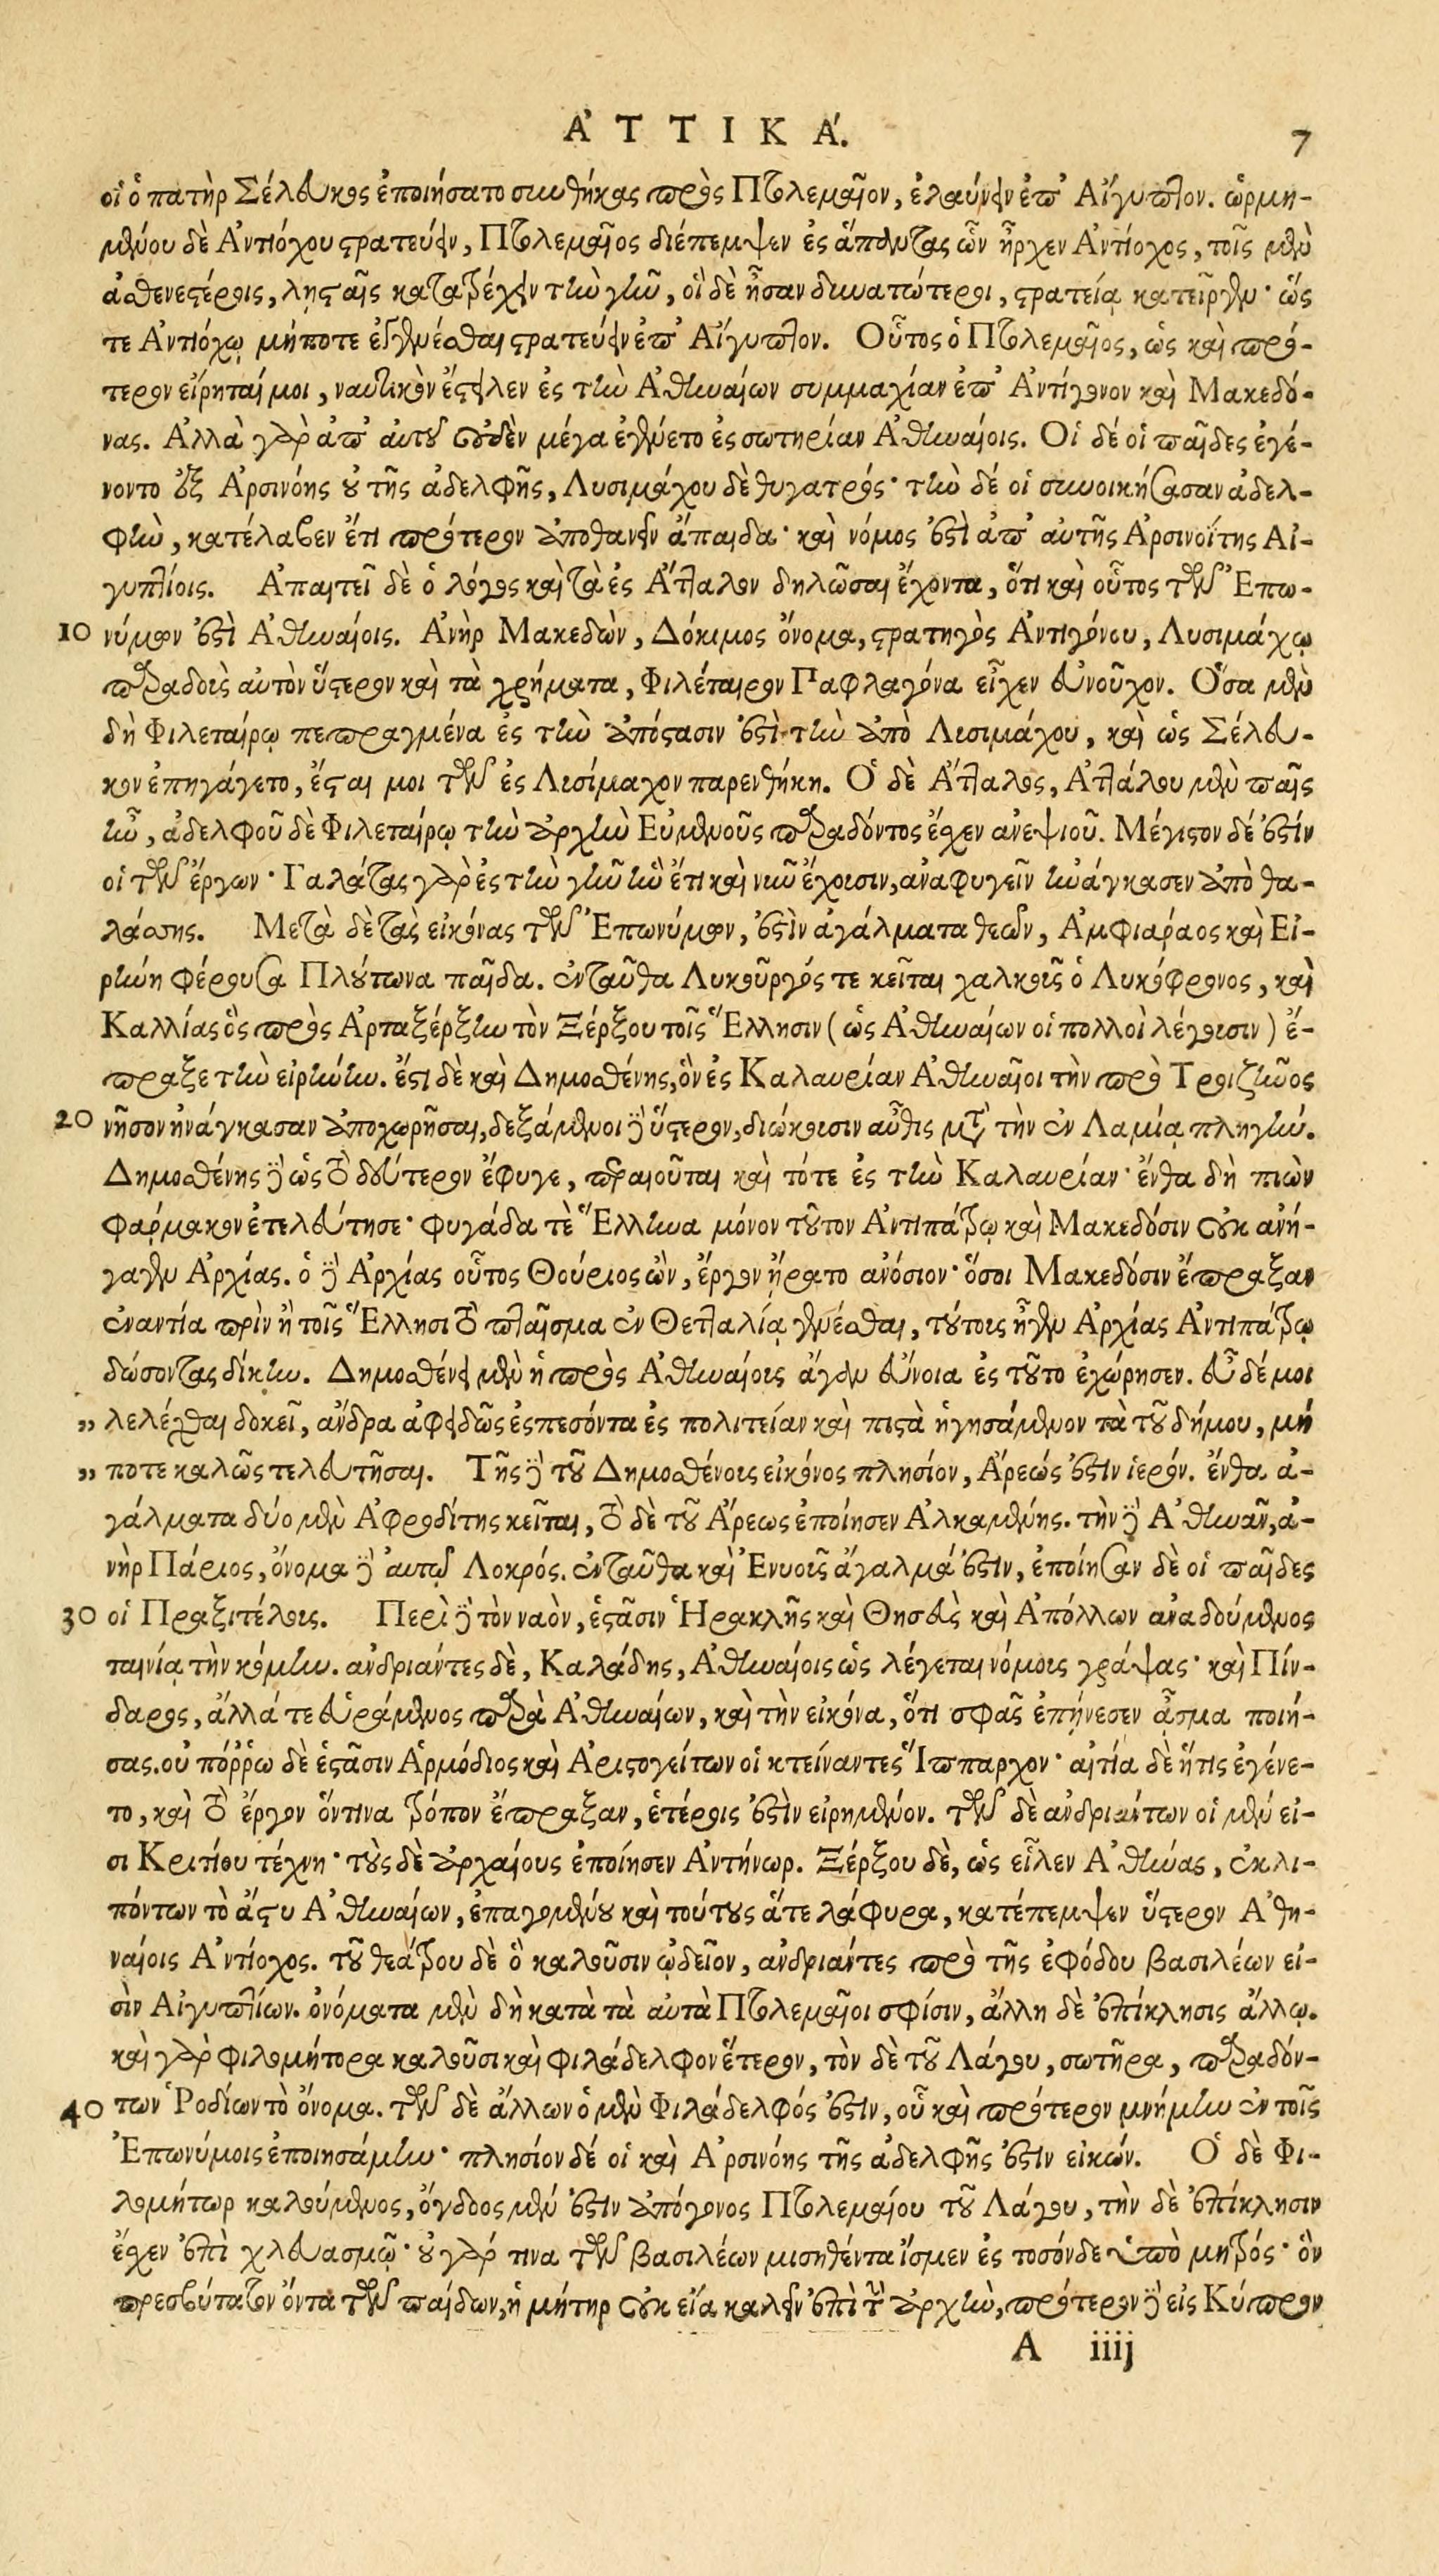 ἈΤΤΙΚΆ. 7
οἱ ὁ πατὴρ Σέλευκος ἐποιήσατο συνθήκας πρὸς Πτολεμαῖον, ἐλαύνειν ἐπ' Αἴγυπτον. ὡρμη-
μένου δὲ Ἀντιόχου στρατεύειν, Πτολεμαῖος διέπεμψεν ἐς ἅπαντας ὧν ἦρχεν Ἀντίοχος, τοῖς μὲν
ἀσθενεστέροις, λῃσταῖς κατατρέχειν τὴν γῆν, οἳ δὲ ἦσαν δυνατώτεροι, στρατείᾳ κατεῖργεν· ὥς
τε Ἀντιόχῳ μήποτε ἐγγενέσθαι στρατεύειν ἐπ' Αἴγυπτον. Οὗτος ὁ Πτολεμαῖος, ὡς καὶ πρό-
τερον εἴρηταί μοι, ναυτικὸν ἔστειλεν ἐς τὴν Ἀθηναίων συμμαχίαν ἐπ' Ἀντίγονον καὶ Μακεδό-
νας. Ἀλλὰ γὰρ ἀπ' αὐτοῦ οὐδὲν μέγα ἐγένετο ἐς σωτηρίαν Ἀθηναίοις. Οἱ δέ οἱ παῖδες ἐγέ-
νοντο ἐξ Ἀρσινόης οὐ τῆς ἀδελφῆς, Λυσιμάχου δὲ θυγατρός· τὴν δέ οἱ συνοικήσασαν ἀδελ-
φὴν, κατέλαβεν ἔτι πρότερον ἀποθανεῖν ἄπαιδα· καὶ νόμος ἐστὶ ἀπ' αὐτῆς Ἀρσινοΐτης Αἰ-
γυπτίοις. Ἀπαιτεῖ δὲ ὁ λόγος καὶ τὰ ἐς Ἄτταλον δηλῶσαι ἔχοντα, ὅτι καὶ οὗτος τῶν Ἐπω-
10 νύμων ἐστὶ Ἀθηναίοις. Ἀνὴρ Μακεδὼν, Δόκιμος ὄνομα, στρατηγὸς Ἀντιγόνου, Λυσιμάχῳ
παραδοὺς αὐτὸν ὕστερον καὶ τὰ χρήματα, Φιλέταιρον Παφλαγόνα εἶχεν εὐνοῦχον. Ὅσα μὲν
δὴ Φιλεταίρῳ πεπραγμένα ἐς τὴν ἀπόστασιν ἐστὶ τὴν ἀπὸ Λυσιμάχου, καὶ ὡς Σέλευ-
κον ἐπηγάγετο, ἔσται μοι τῶν ἐς Λυσίμαχον παρενθήκη. Ὁ δὲ Ἄτταλος, Ἀττάλου μὲν παῖς
ὢν, ἀδελφοῦ δὲ Φιλεταίρῳ τὴν ἀρχὴν Εὐμενοῦς παραδόντος ἔσχεν ἀνεψιοῦ. Μέγιστον δέ ἐστίν
οἱ τῶν ἔργων· Γαλάτας γὰρ ἐς τὴν γῆν ἣν ἔτι καὶ νῦν ἔχουσιν, ἀναφυγεῖν ἠνάγκασεν ἀπὸ θα-
λάσσης. Μετὰ δὲ τὰς εἰκόνας τῶν Ἐπωνύμων, ἐστὶν ἀγάλματα θεῶν, Ἀμφιάραος καὶ Εἰ-
ρήνη φέρουσα Πλούτωνα παῖδα. ἐνταῦθα Λυκοῦργός τε κεῖται χαλκοῦς ὁ Λυκόφρονος, καὶ
Καλλίας ὃς πρὸς Ἀρταξέρξην τὸν Ξέρξου τοῖς Ἕλλησιν (ὡς Ἀθηναίων οἱ πολλοὶ λέγουσιν) ἔ-
πραξε τὴν εἰρήνην. ἔστι δὲ καὶ Δημοσθένης, ὃν ἐς Καλαυρίαν Ἀθηναῖοι τὴν πρὸ Τροιζῆνος
20 νῆσον ἠνάγκασαν ἀποχωρῆσαι, δεξάμενοι δὲ ὕστερον, διώκουσιν αὖθις μετὰ τὴν ἐν Λαμίᾳ πληγήν.
Δημοσθένης δὲ ὡς τὸ δεύτερον ἔφυγε, περαιοῦται καὶ τότε ἐς τὴν Καλαυρίαν· ἔνθα δὴ πιὼν
φάρμακον ἐτελεύτησε· φυγάδα τὲ Ἕλληνα μόνον τοῦτον Ἀντιπάτρῳ καὶ Μακεδόσιν οὐκ ἀνή-
γαγεν Ἀρχίας. ὁ δὲ Ἀρχίας οὗτος Θούριος ὢν, ἔργον ἤρατο ἀνόσιον· ὅσοι Μακεδόσιν ἔπραξαν
ἐναντία πρὶν ἢ τοῖς Ἕλλησι τὸ πταῖσμα ἐν Θετταλίᾳ γενέσθαι, τούτους ἦγεν Ἀρχίας Ἀντιπάτρῳ
δώσοντας δίκην. Δημοσθένει μὲν ἡ πρὸς Ἀθηναίους ἄγαν εὔνοια ἐς τοῦτο ἐχώρησεν. εὖ δέ μοι
„ λελέχθαι δοκεῖ, ἄνδρα ἀφειδῶς ἐσπεσόντα ἐς πολιτείαν καὶ πιστὰ ἡγησάμενον τὰ τοῦ δήμου, μή
„ ποτε καλῶς τελευτῆσαι. Τῆς δὲ τοῦ Δημοσθένους εἰκόνος πλησίον, Ἄρεώς ἐστιν ἱερόν. ἔνθα ἀ-
γάλματα δύο μὲν Ἀφροδίτης κεῖται, τὸ δὲ τοῦ Ἄρεως ἐποίησεν Ἀλκαμένης. τὴν δὲ Ἀθηνᾶν, ἀ-
νὴρ Πάριος, ὄνομα δὲ αὐτῷ Λοκρός. ἐνταῦθα καὶ Ἐνυοῦς ἄγαλμά ἐστιν, ἐποίησαν δὲ οἱ παῖδες
30 οἱ Πραξιτέλους. Περὶ δὲ τὸν ναὸν, ἑστᾶσιν Ἡρακλῆς καὶ Θησεὺς καὶ Ἀπόλλων ἀναδούμενος
ταινίᾳ τὴν κόμην. ἀνδριάντες δὲ, Καλάδης, Ἀθηναίοις ὡς λέγεται νόμους γράψας· καὶ Πίν-
δαρος, ἄλλά τε εὑράμενος παρὰ Ἀθηναίων, καὶ τὴν εἰκόνα, ὅτι σφᾶς ἐπῄνεσεν ᾆσμα ποιή-
σας. οὐ πόῤῥω δὲ ἑστᾶσιν Ἁρμόδιος καὶ Ἀριστογείτων οἱ κτείναντες Ἵππαρχον· αἰτία δὲ ἥτις ἐγένε-
το, καὶ τὸ ἔργον ὅντινα τρόπον ἔπραξαν, ἑτέροις ἐστὶν εἰρημένον. τῶν δὲ ἀνδριάντων οἱ μέν εἰ-
σι Κριτίου τέχνη· τοὺς δὲ ἀρχαίους ἐποίησεν Ἀντήνωρ. Ξέρξου δὲ, ὡς εἷλεν Ἀθήνας, ἐκλι-
πόντων τὸ ἄστυ Ἀθηναίων, ἐπαγομένου καὶ τούτους ἅτε λάφυρα, κατέπεμψεν ὕστερον Ἀθη-
ναίοις Ἀντίοχος. τοῦ θεάτρου δὲ ὃ καλοῦσιν ᾠδεῖον, ἀνδριάντες πρὸ τῆς ἐφόδου βασιλέων εἰ-
σὶν Αἰγυπτίων. ὀνόματα μὲν δὴ κατὰ τὰ αὐτὰ Πτολεμαῖοι σφίσιν, ἄλλη δὲ ἐπίκλησις ἄλλῳ.
καὶ γὰρ φιλομήτορα καλοῦσι καὶ φιλάδελφον ἕτερον, τὸν δὲ τοῦ Λάγου, σωτῆρα, παραδόν-
40 των Ῥοδίων τὸ ὄνομα. τῶν δὲ ἄλλων ὁ μὲν Φιλάδελφός ἐστιν, οὗ καὶ πρότερον μνήμην ἐν τοῖς
Ἐπωνύμοις ἐποιησάμην· πλησίον δέ οἱ καὶ Ἀρσινόης τῆς ἀδελφῆς ἐστιν εἰκών. Ὁ δὲ Φι-
λομήτωρ καλούμενος, ὄγδοος μέν ἐστιν ἀπόγονος Πτολεμαίου τοῦ Λάγου, τὴν δὲ ἐπίκλησιν
ἔσχεν ἐπὶ χλευασμῷ· οὐ γάρ τινα τῶν βασιλέων μισηθέντα ἴσμεν ἐς τοσόνδε ὑπὸ μητρός· ὃν
πρεσβύτατον ὄντα τῶν παίδων, ἡ μήτηρ οὐκ εἴα καλεῖν ἐπὶ τὴν ἀρχὴν, πρότερον δὲ εἰς Κύπρον
A iiij